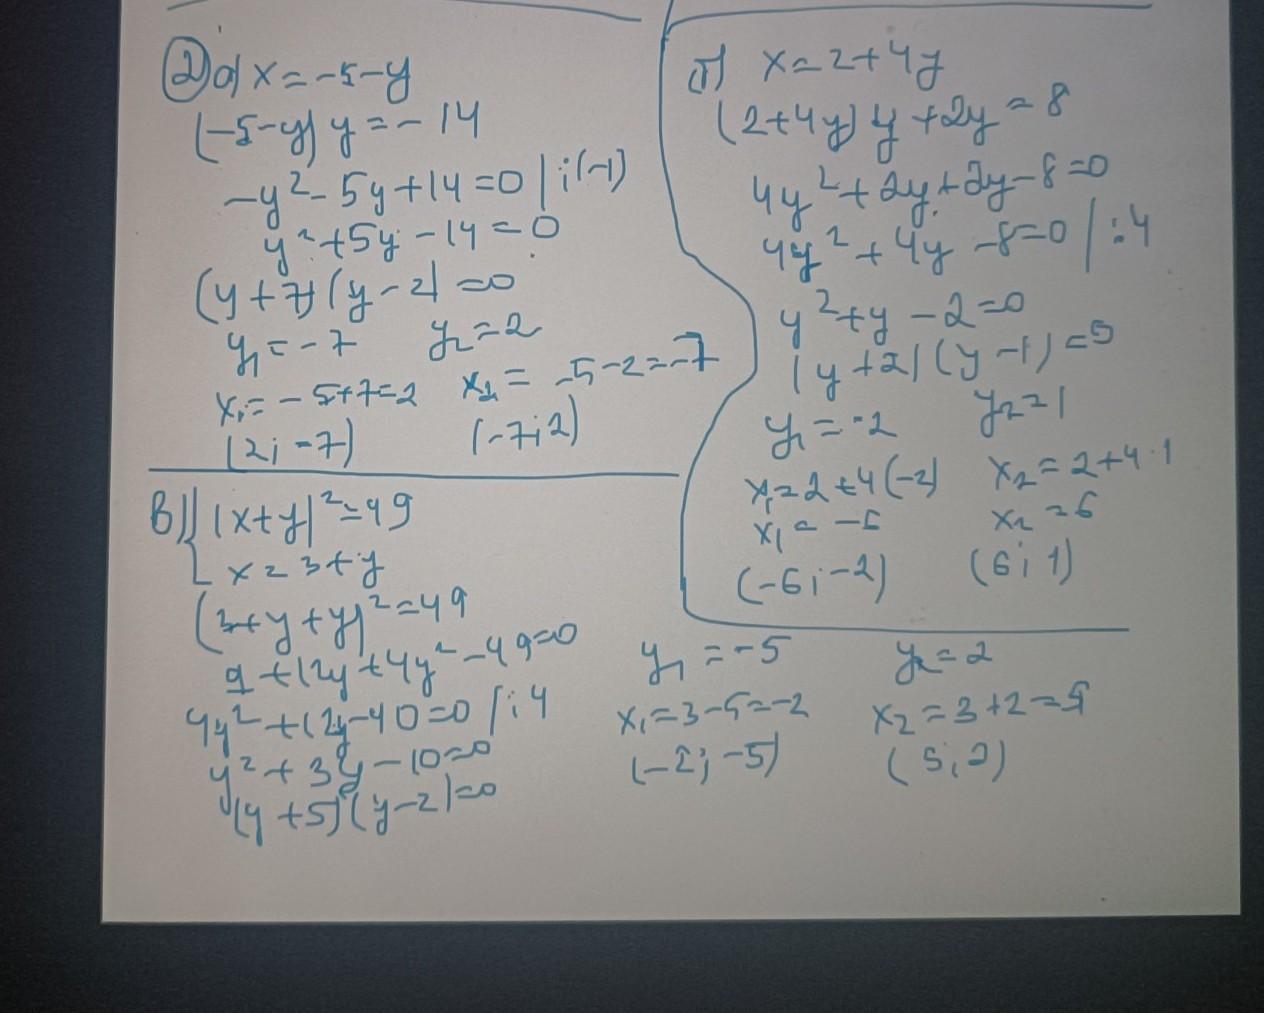 2) а) x = -5-y
(-5-y) y = -14
-y²-5y+14=0 | :(-1)
y²+5y-14=0
(y+7)(y-2)=0
y₁=-7 y₂=2
x₁=-5+7=2 x₂=-5-2=-7
(2;-7) (-7;2)
б) x=2+4y
(2+4y)y+2y=8
4y²+2y+2y-8=0
4y²+4y-8=0 | :4
y²+y-2=0
(y+2)(y-1)=0
y₁=-2 y₂=1
x₁=2+4(-2) x₂=2+4·1
x₁=-6 x₂=6
(-6;-2) (6;1)
в) { (x+y)²=49
x=3+y
(3+y+y)²=49
9+12y+4y²-49=0
4y²+12y-40=0 | :4
y²+3y-10=0
(y+5)(y-2)=0
y₁=-5 y₂=2
x₁=3-5=-2 x₂=3+2=5
(-2;-5) (5;2)